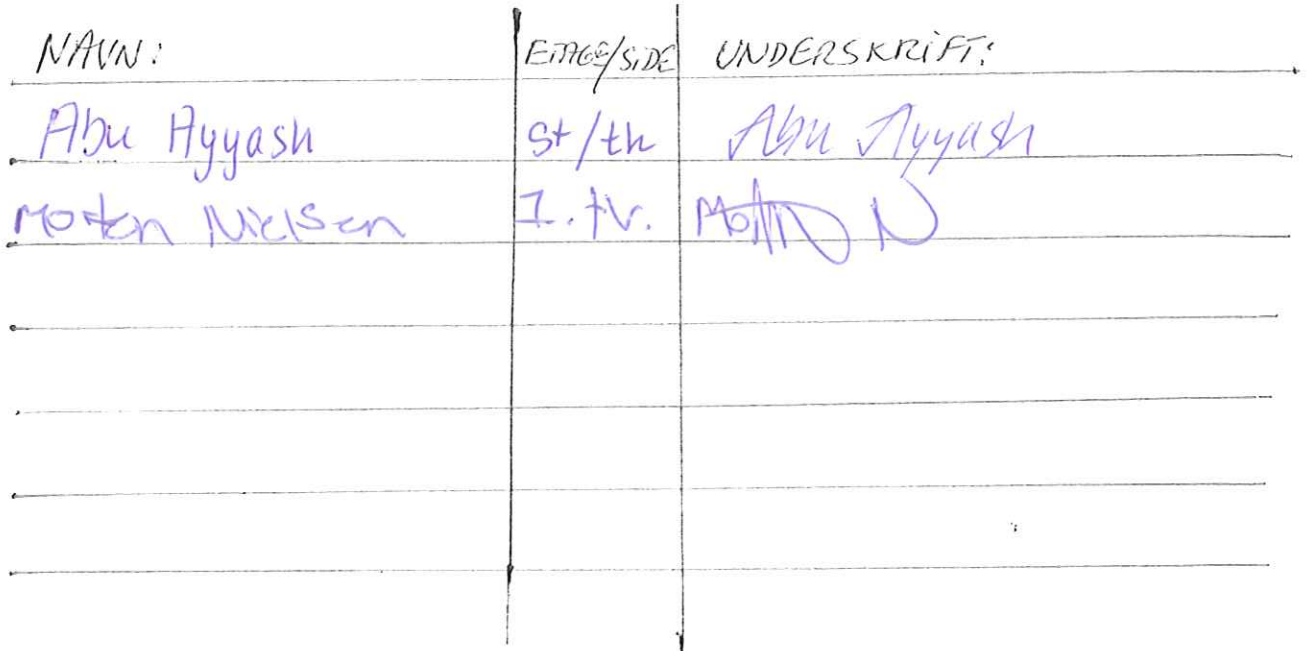 NAVN: ETAGE/SiDE UNDERSKRiFT:
Abu Ayyash st/th Abu Ayyash
Morten Nielsen 1. tv. Morten N